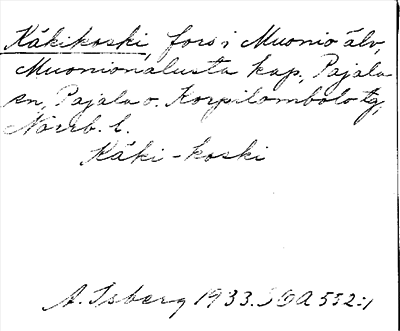 Käkikoski, fors i Muonio älv,
Muonionalusta kap., Pajala
sn, Pajala o. Korpilombolo tg,
Norrb. l.
Käki-koski
A. Isberg 1933. SOA 552:1